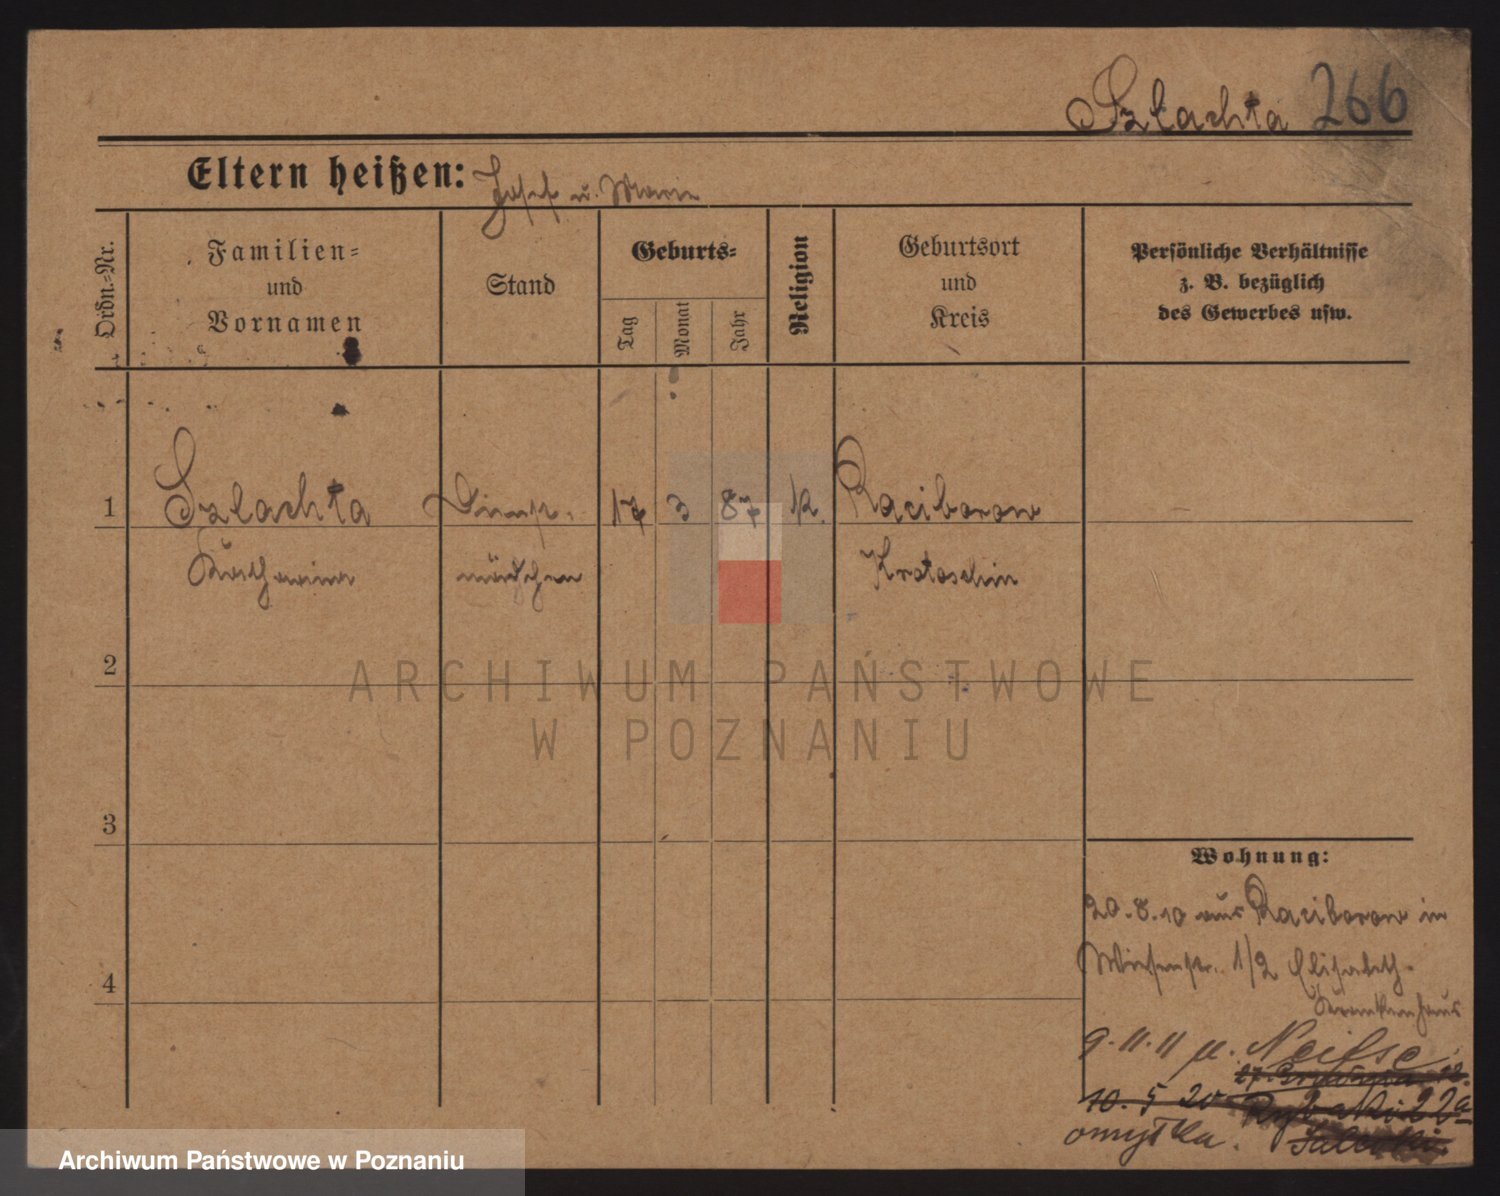 Szlachta 266
Eltern heißen: Josef u. Marie
Ordn.-Nr.
Familien=
und
Vornamen
Stand
Geburts=
Tag
Monat
Jahr
Religion
Geburtsort
und
Kreis
Persönliche Verhältnisse
z. B. bezüglich
des Gewerbes usw.
1 Szlachta Dienst. 17 3 87 k. Raciborow
Katharina mädchen Krotoschin
2
ARCHIWUM PAŃSTWOWE
W POZNANIU
3
Wohnung:
20.8.10 aus Raciborow in
Wiesenstr. 1/2 Elisabeth
4
Krankenhaus
9.11.11 n. Neisse
10.5 20 Rybaki 22a
omyłka.
Archiwum Państwowe w Poznaniu